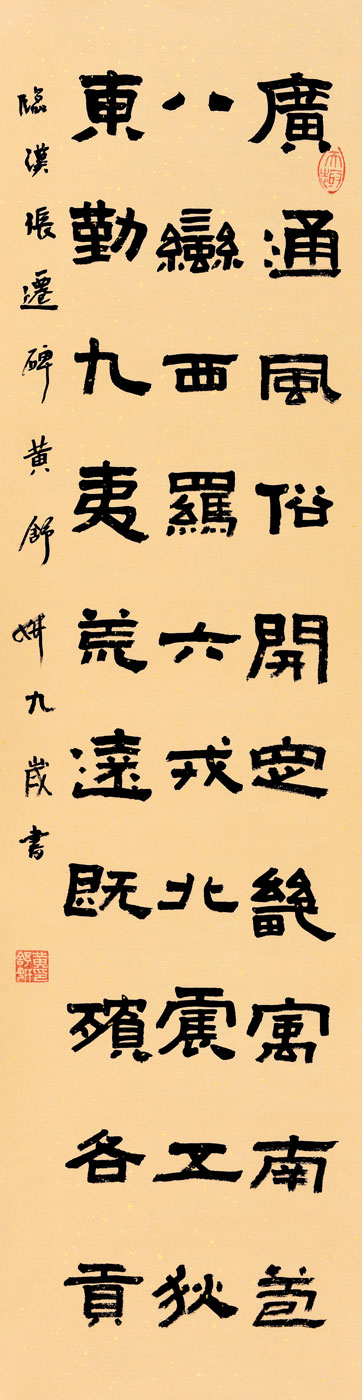 廣通風俗開定畿寓南苞
八蠻西羈六戎北震五狄
東勤九夷荒遠既殯各貢
臨漢張遷碑黃舒妍九歲書